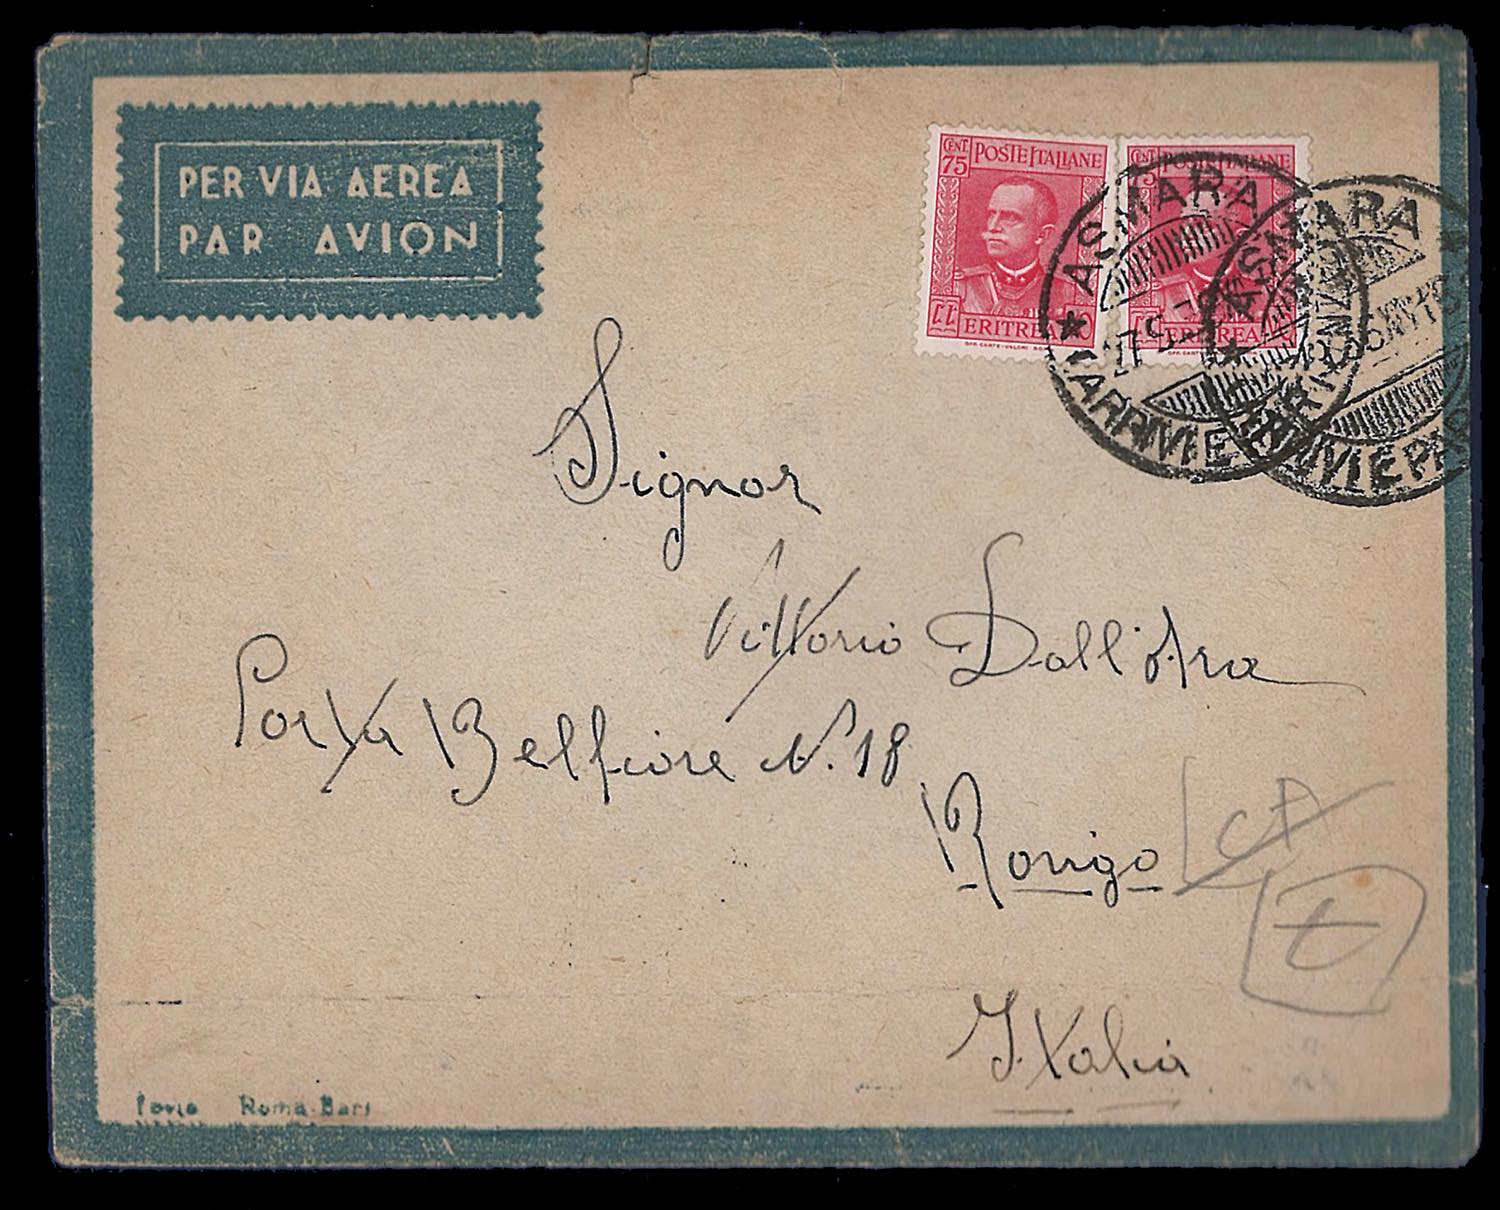 PER VIA AEREA
PAR AVION
CENT. 75 POSTE ITALIANE
ERITREA
POSTE ITALIANE
ERITREA
ASMARA
ARRIVI E
ASMARA
ARRIVI E PAR
Signor
Vittorio Dall'Ara
Porta Belfiore N. 18
Rovigo
Italia
Roma-Bari